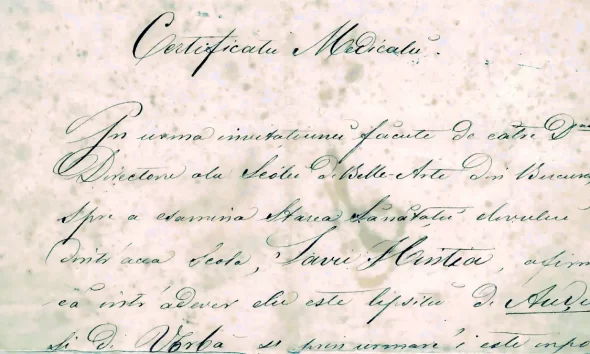 Certificatu Medicalu.
In urma invitatiunei făcute de către Dnu
Directore alu Scolei de Belle-Arte din Bucur
spre a esamina starea sănătăței elevului
dintr'acea școlă, Savu Hintza, afirm
că intr'adever elu este lipsitu de Audu
și de Vorbă și prin urmare i este impo